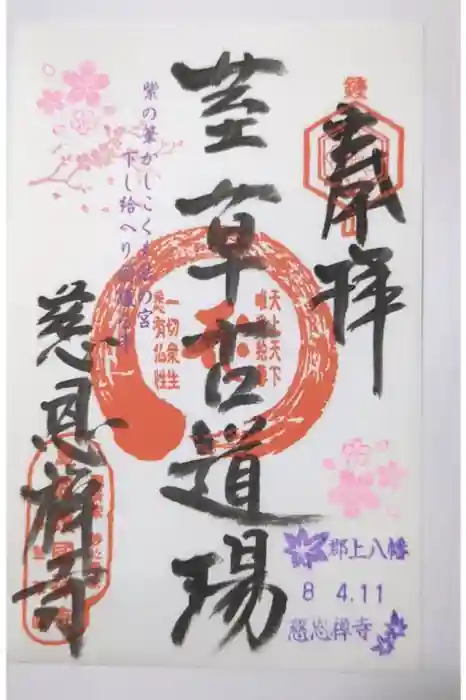 奉拝
荎草古道場
慈恩禅寺
紫の筆かしこくも の宮
下し給へり
天上天下
唯我独尊
一切衆生
悉有仏性
郡上八幡
8 4.11
慈恩禅寺